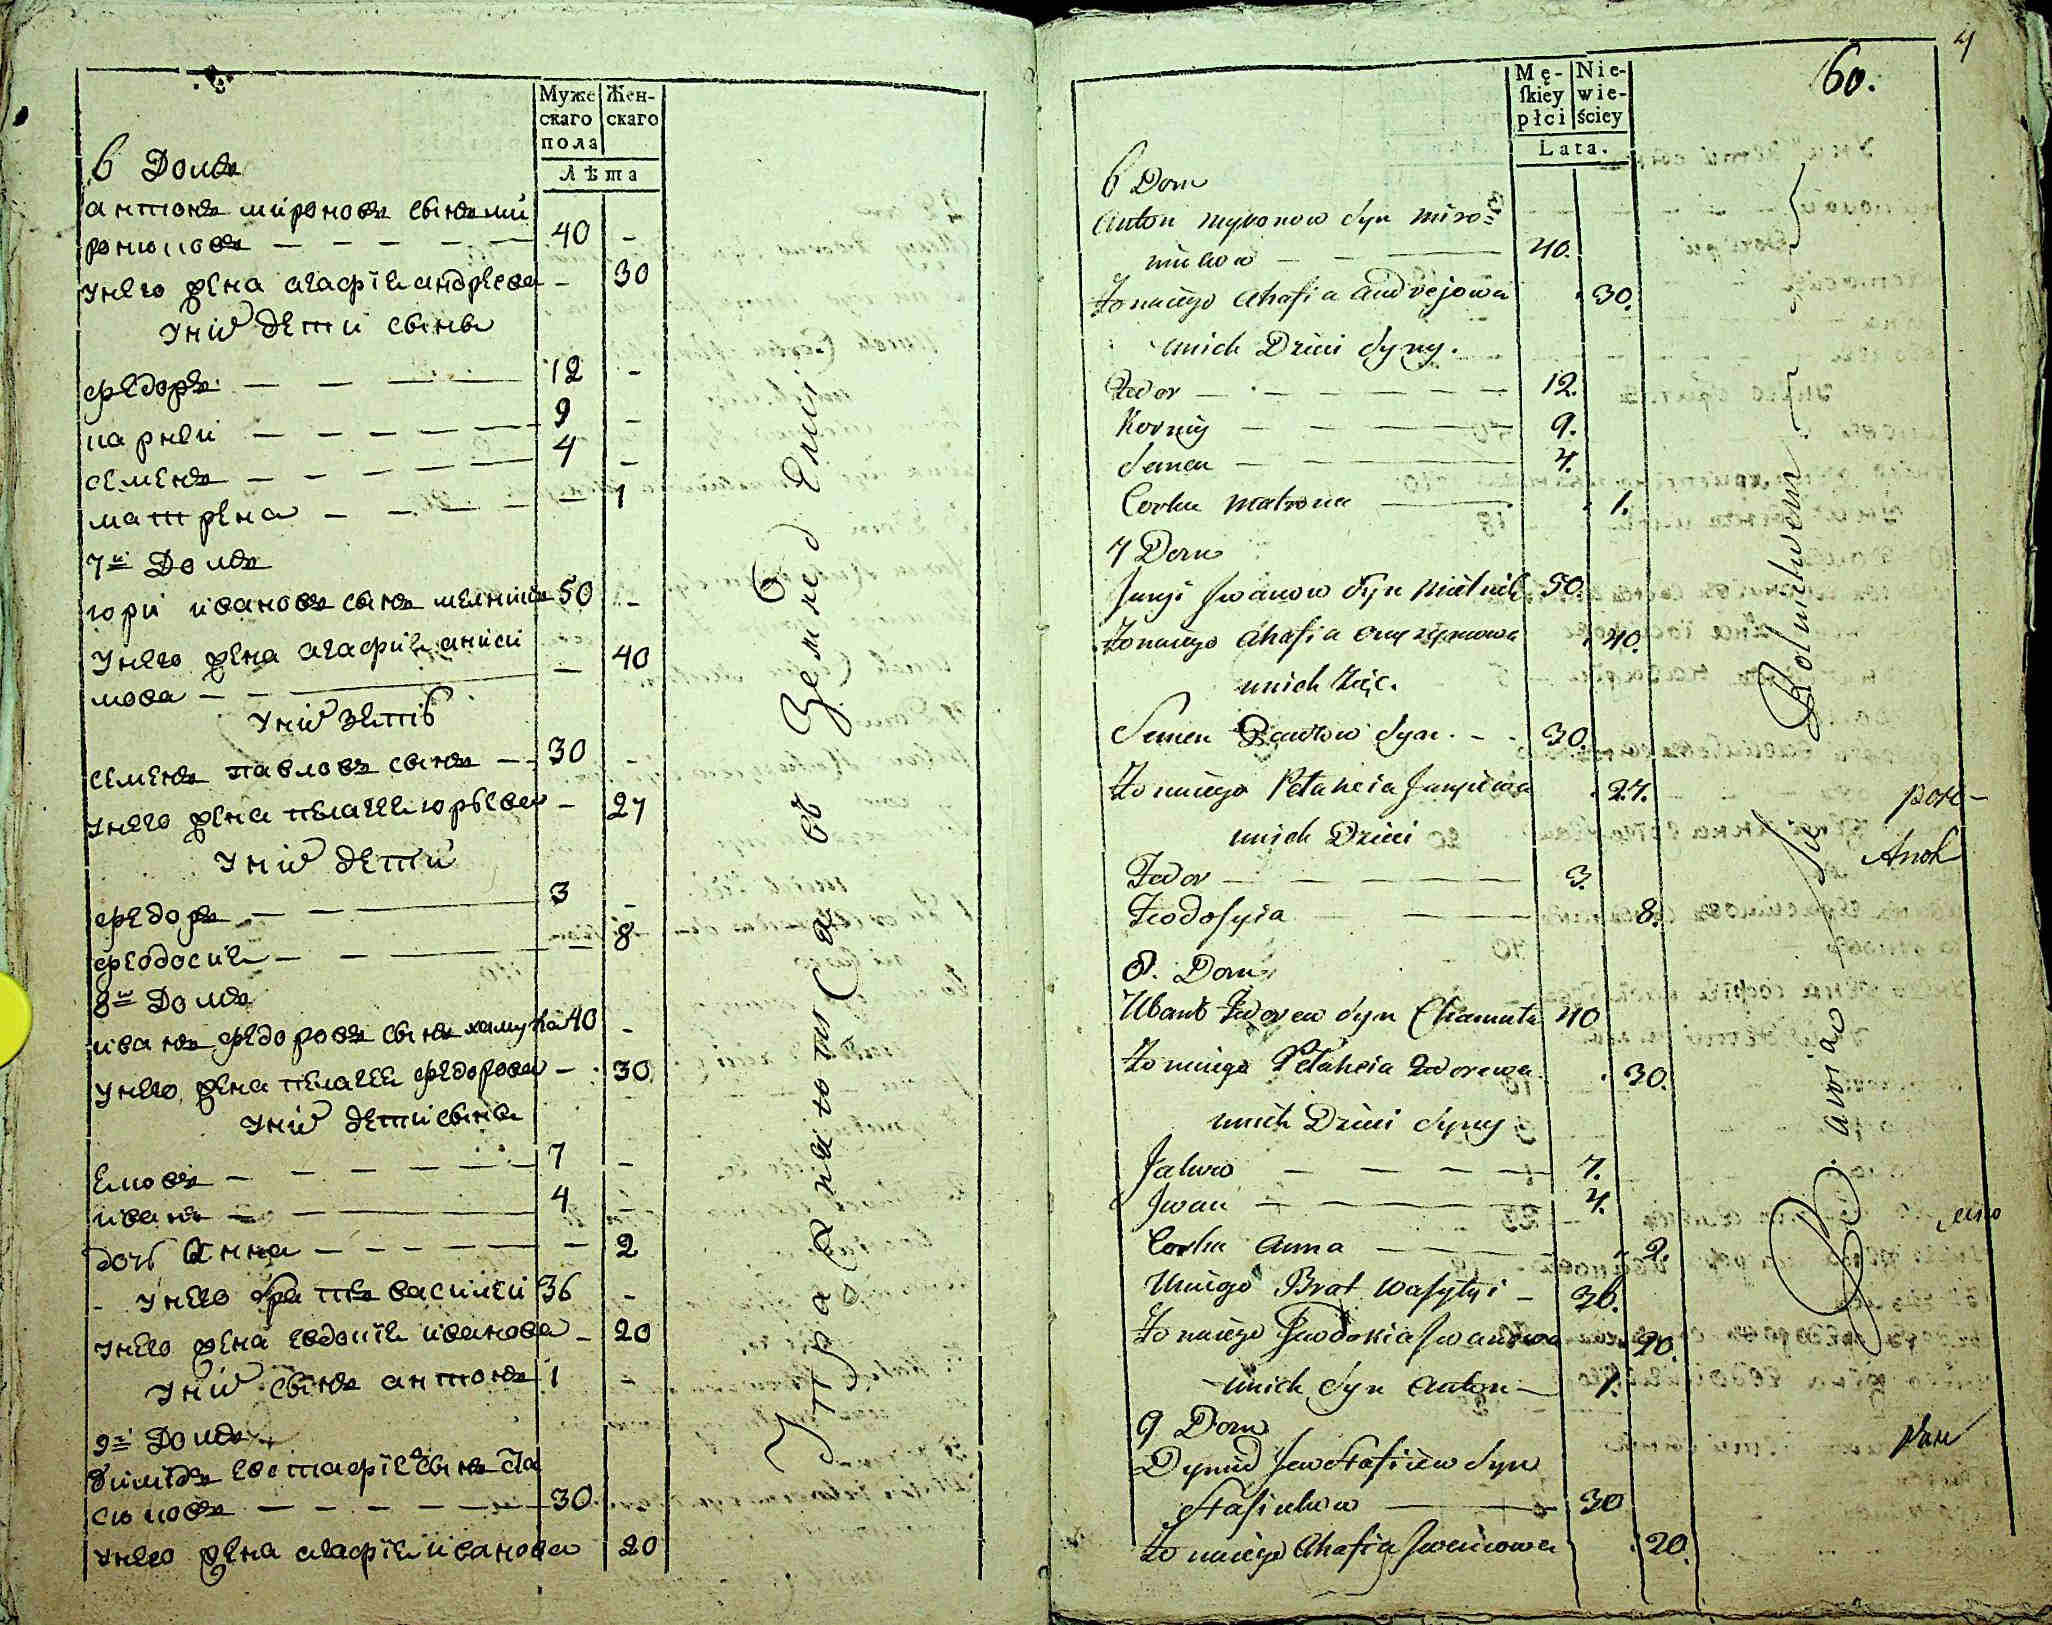 Муже скаго пола
Жен- скаго
Лѣта
6 Домъ
антонъ мироновъ сынъ ми
ронюковъ — — — — — 40 -
унего жена агафїя андреева - 30
унихъ дети сыны
федоръ — — — — 12 -
карней — — — — 9 -
семенъ — — — — 4 -
матрена — — — — - 1
7й Домъ
юри ивановъ сынъ мелникъ 50 -
унего жена агафия аниси
мова — — - 40
унихъ зеть
семенъ павловъ сынъ — 30 -
унего жена пелагея юрьева - 27
унихъ дети
федоръ — — — 3 -
феодосия — — — - 8
8й Домъ
иванъ федоровъ сынъ хамута 40 -
унего жена пелагея федорова - 30
унихъ дети сыны
яковъ — — — — 7 -
иванъ — — — — 4 -
дочь Анна — — — - 2
- унего братъ василей 36 -
унего жена евдокїя иванова - 20
унихъ сынъ антонъ 1 -
9й Домъ
димидъ евстафїевъ сынъ ста
сюковъ — — — — 30
унего жена агафїя иванова 20
Управляются въ Землед Елии
4
60.
Mę- skiey płci
Nie- wie- ściey
Lata.
6 Dom
Anton Myronow Syn Miro=
niukow — — — 40.
Żona iego Ahafia Andrejowa 30.
unich Dzieci Syny.
Fedor — — — — 12.
Korniy — — — — 9.
Semen — — — — 4.
Corka Matrona — — 1.
7 Dom
Jurji Iwanow Syn Mielnik 50.
Żona iego Ahafia Onyzymowa 40.
unich Zięc.
Semen Pawłow Syn - - 30.
Żona iego Pełaheia Jurjiewa 27.
unich Dzieci
Fedor — — — — 3.
Feodosyia — — — 8.
8. Dom
Иванъ Fedorew Syn Chamuta 40
Żona iego Pełaheia Fedorewa 30.
unich Dzieci Syny
Jakow — — — — 7.
Iwan — — — — 4.
Corka Anna — — 2.
Uniego Brat Wasyłyi — 36.
Żona iego Jewdokia Iwanowa 20.
unich Syn Anton — 1.
9 Dom
Dymid Jewstafiiew Syn
Stasiukow — — 30
Żona iego Ahafia Iwanowa 20.
Się Rolnictwem